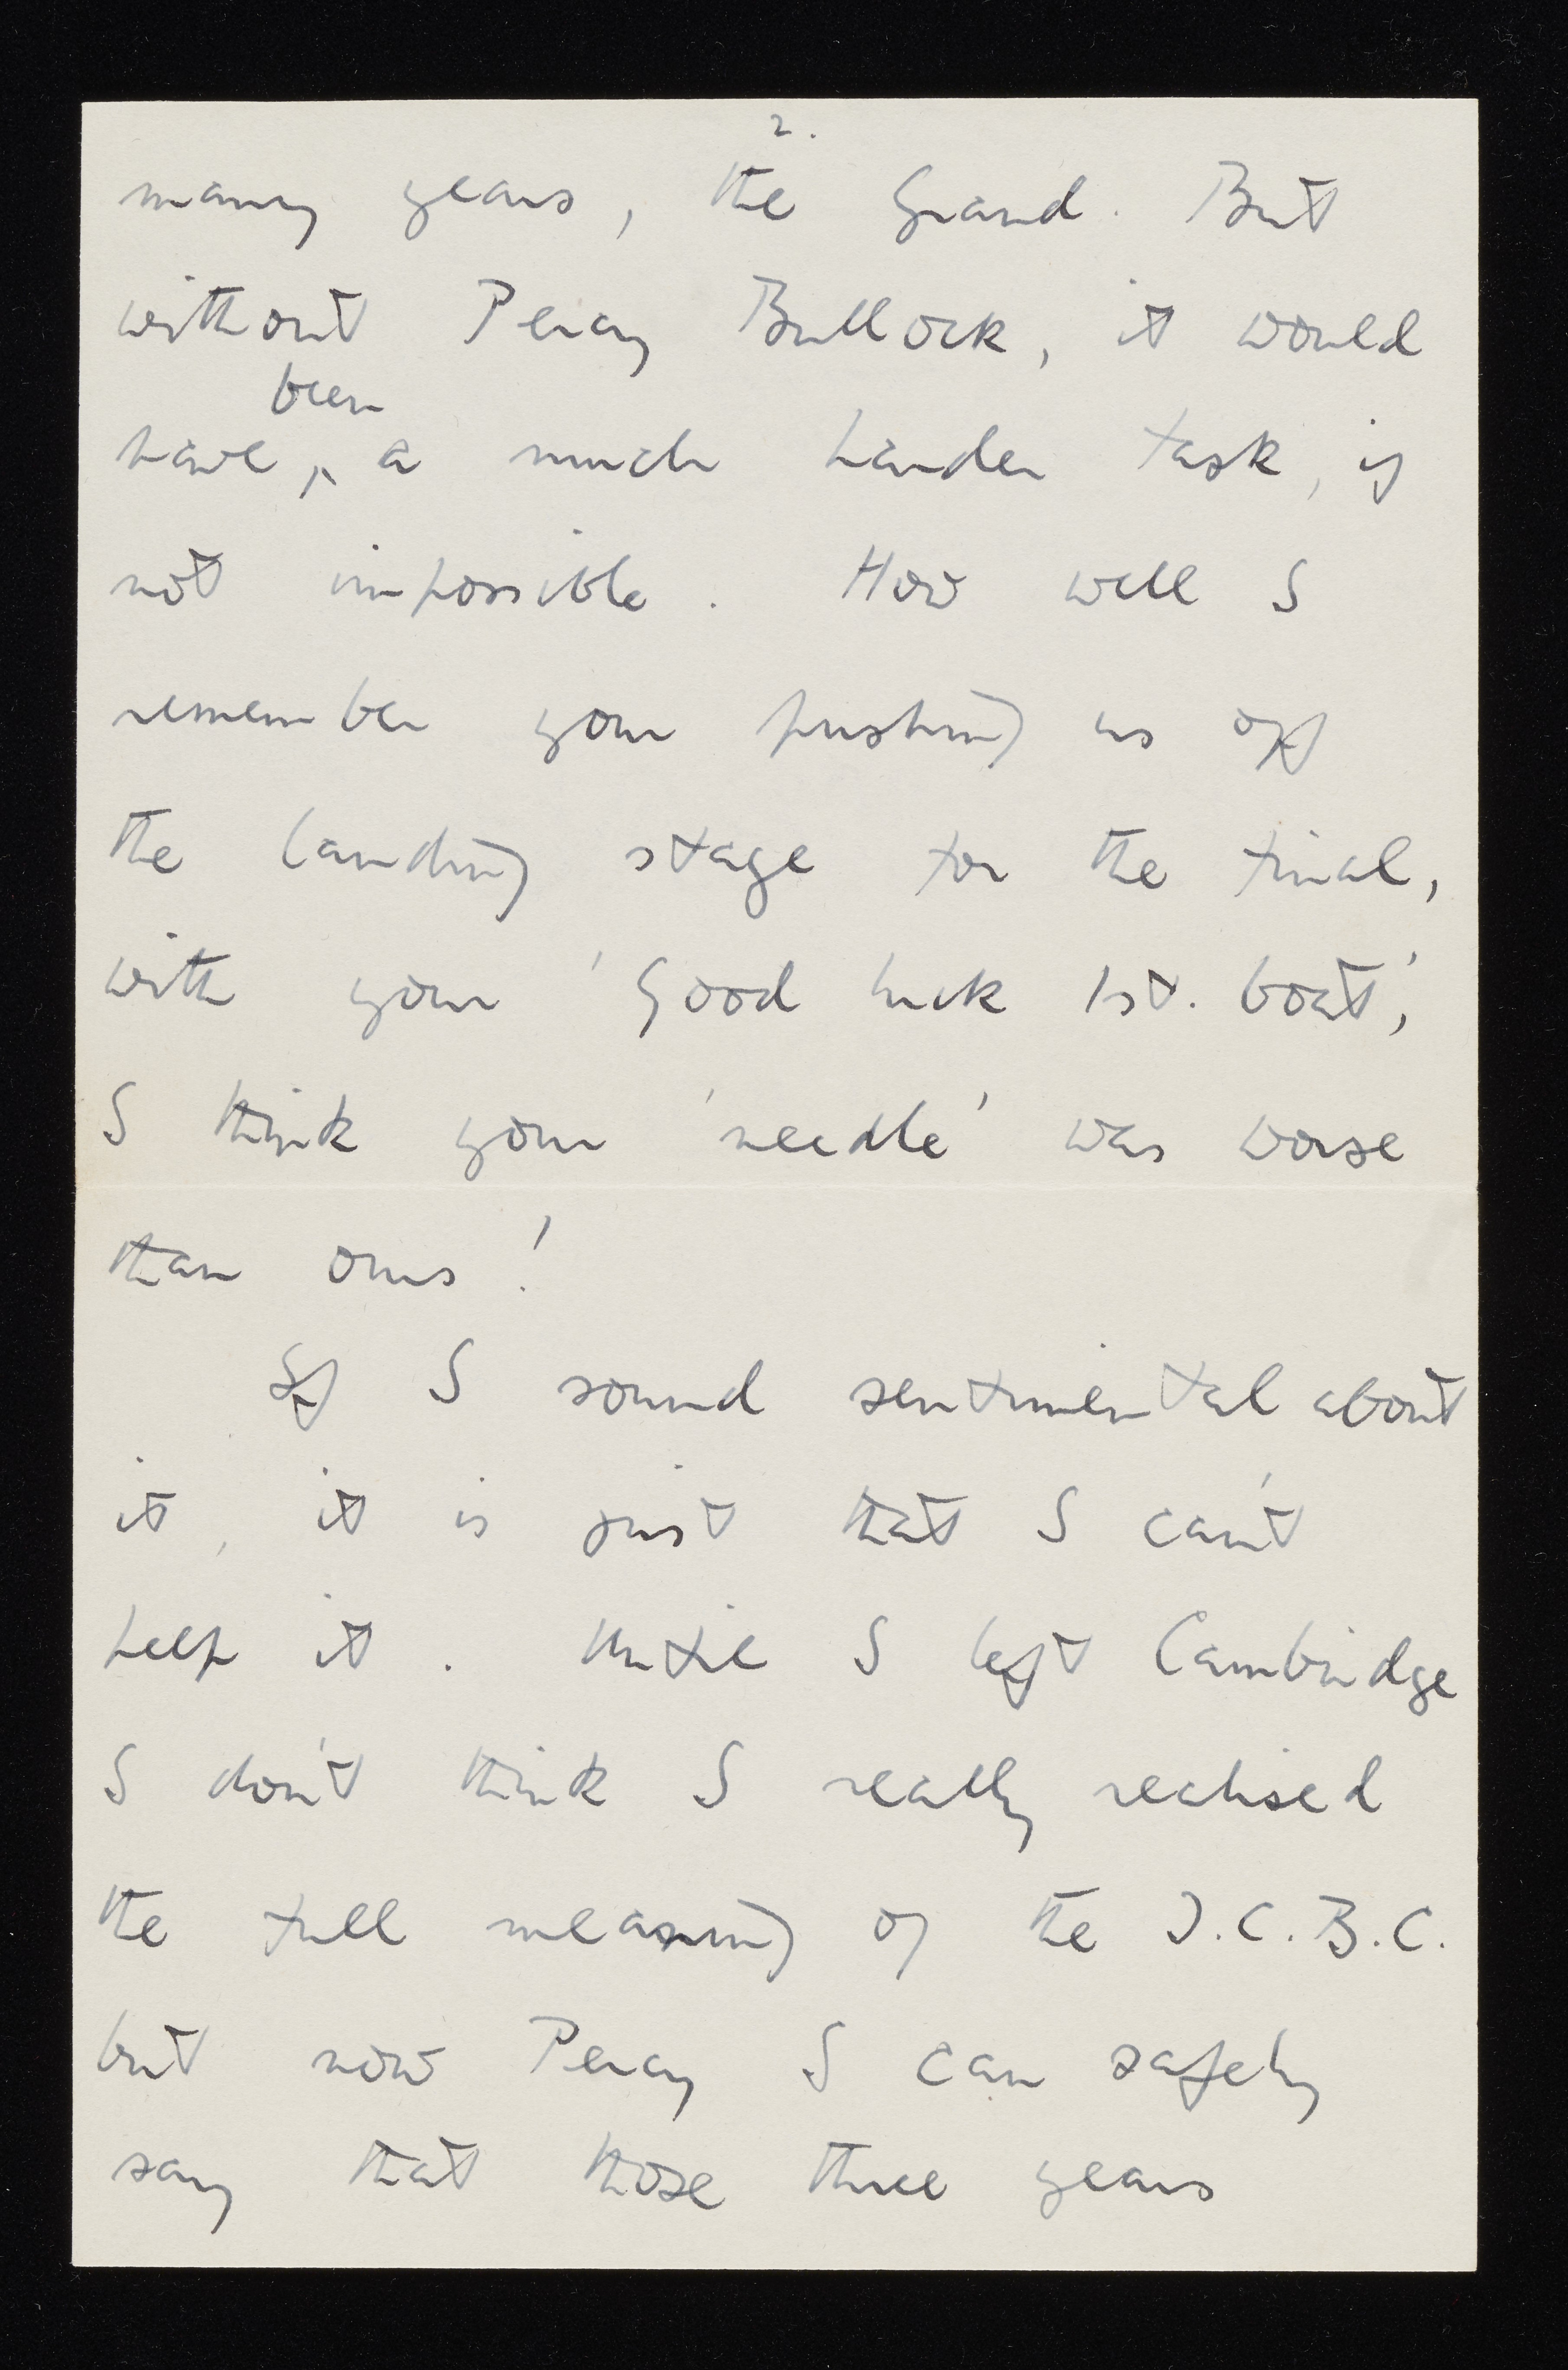 2.
many years, the Grand. But
without Percy Bullock, it would
been
have, ^ a much harder task, if
not impossible. How well I
remember your pushing us off
the landing stage for the final,
with your 'Good luck 1st. boat',
I think your 'needle' was worse
than ours!
If I sound sentimental about
it, it is just that I can't
help it. Until I left Cambridge
I don't think I really realised
the full meaning of the J.C.B.C.
but now Percy I can safely
say that those three years